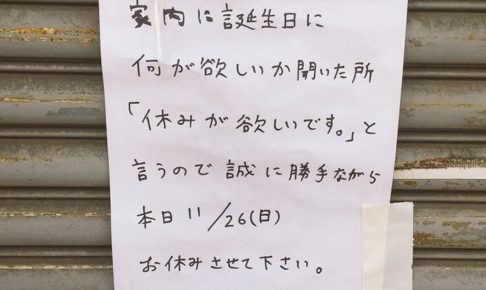 家内に誕生日に
何が欲しいか開いた所
「休みが欲しいです。」と
言うので誠に勝手ながら
本日11/26(日)
お休みさせて下さい。